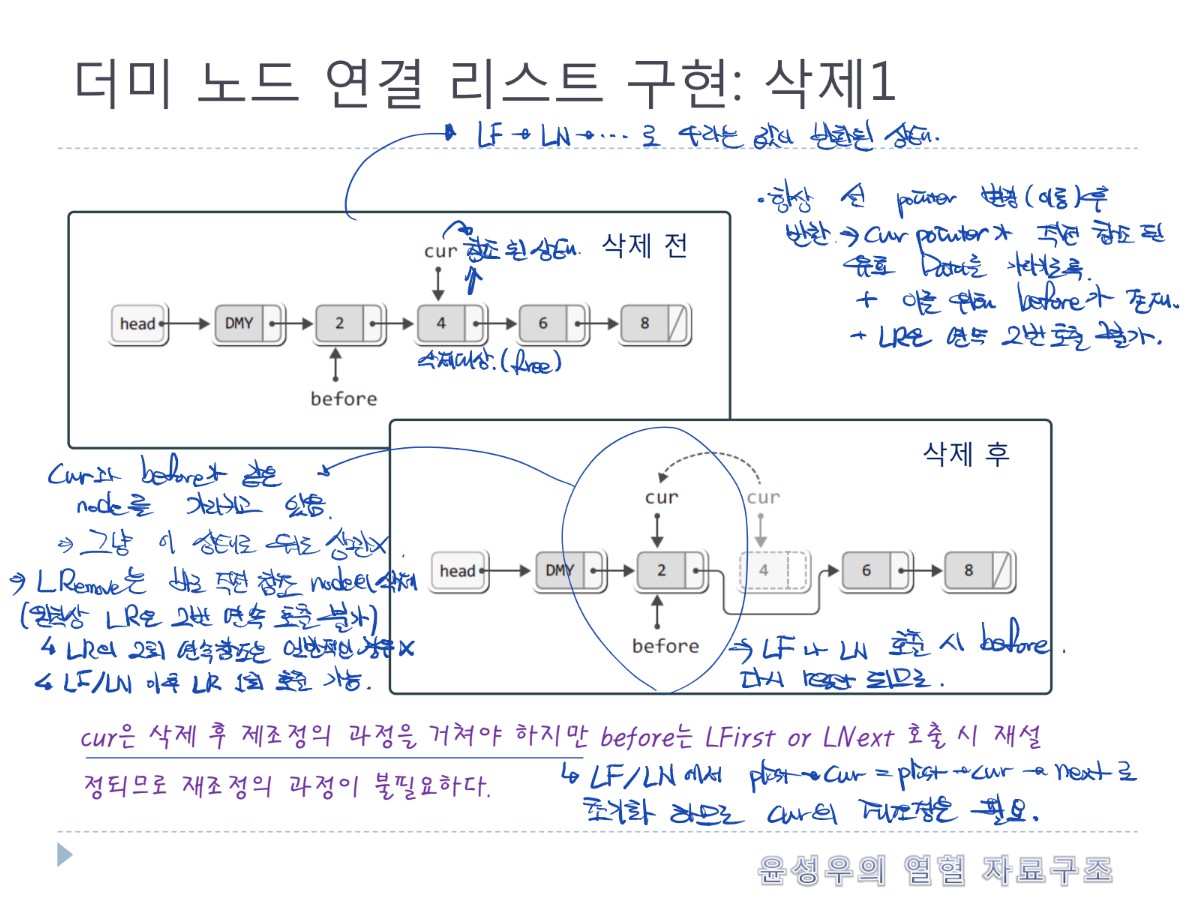 더미 노드 연결 리스트 구현: 삭제1
LF → LN → ··· 로 4라는 값이 반환된 상태.
·항상 선 pointer 변경(이동)후
반환. → cur pointer가 직전 참조 된
유효 Data를 가리키도록.
+ 이를 위해 before가 존재.
→ LR은 연속 2번 호출 불가.
삭제 전
cur 참조 된 상태.
head DMY 2 4 6 8
삭제대상.(free)
before
삭제 후
cur cur
head DMY 2 4 6 8
before
cur과 before가 같은
node를 가리키고 있음.
→ 그냥 이 상태로 둬도 상관X.
→ LRemove는 바로 직전 참조 node의 삭제
(원칙상 LR은 2번 연속 호출 불가)
↳ LR의 2회 연속참조은 일반적인 경우X
↳ LF/LN 이후 LR 1회 호출 가능.
→ LF나 LN 호출 시 before.
다시 reset 되므로.
cur은 삭제 후 제조정의 과정을 거쳐야 하지만 before는 LFirst or LNext 호출 시 재설
정되므로 재조정의 과정이 불필요하다.
↳ LF/LN에서 plist→cur = plist→cur→next로
초기화 하므로 cur의 재조정은 필요.
윤성우의 열혈 자료구조